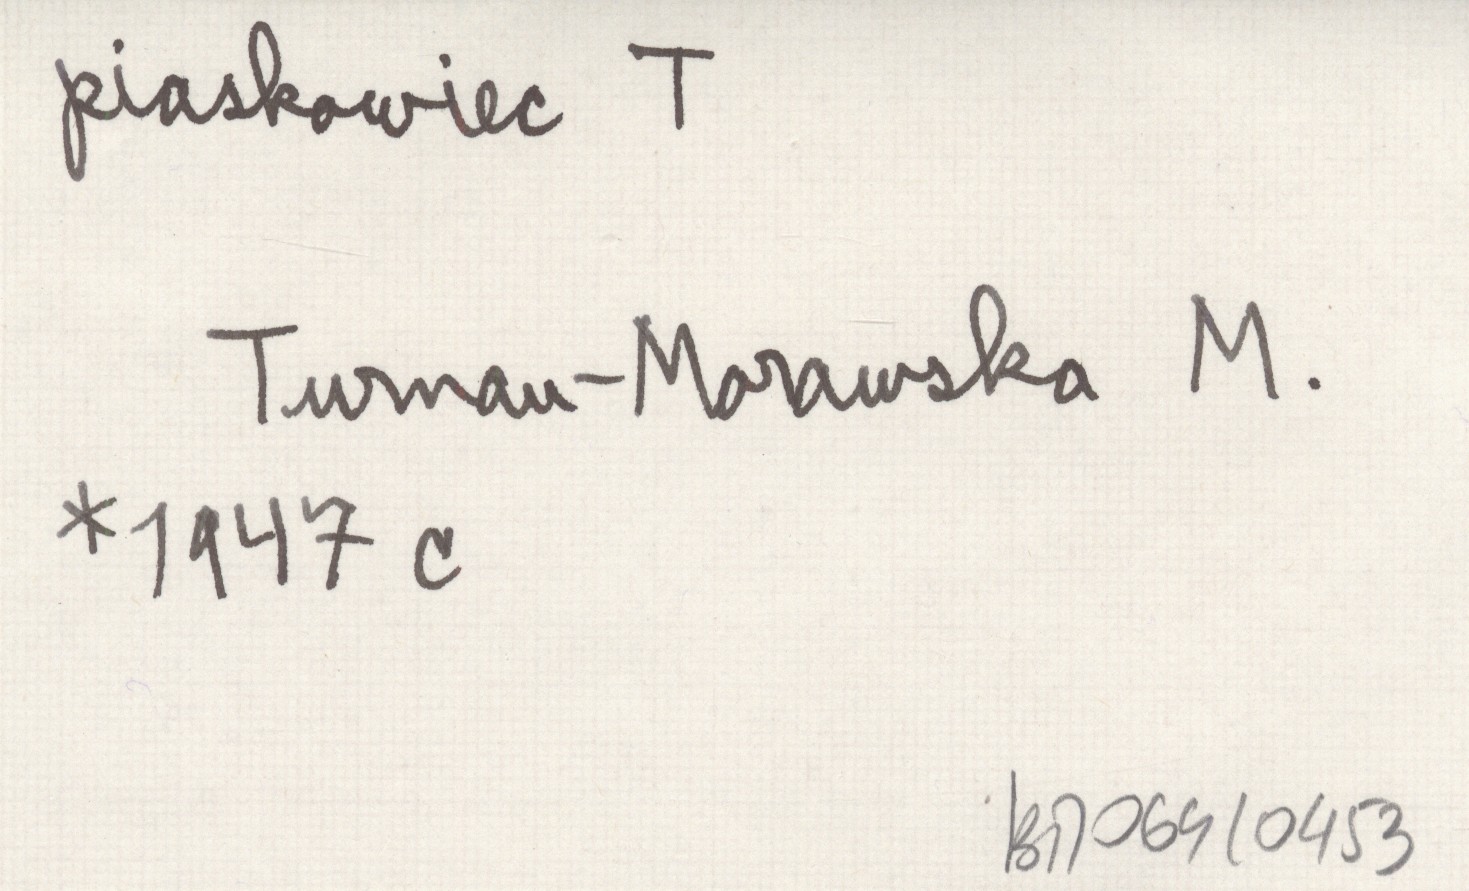 piaskowiec T
Turnau-Morawska M.
*1947 c